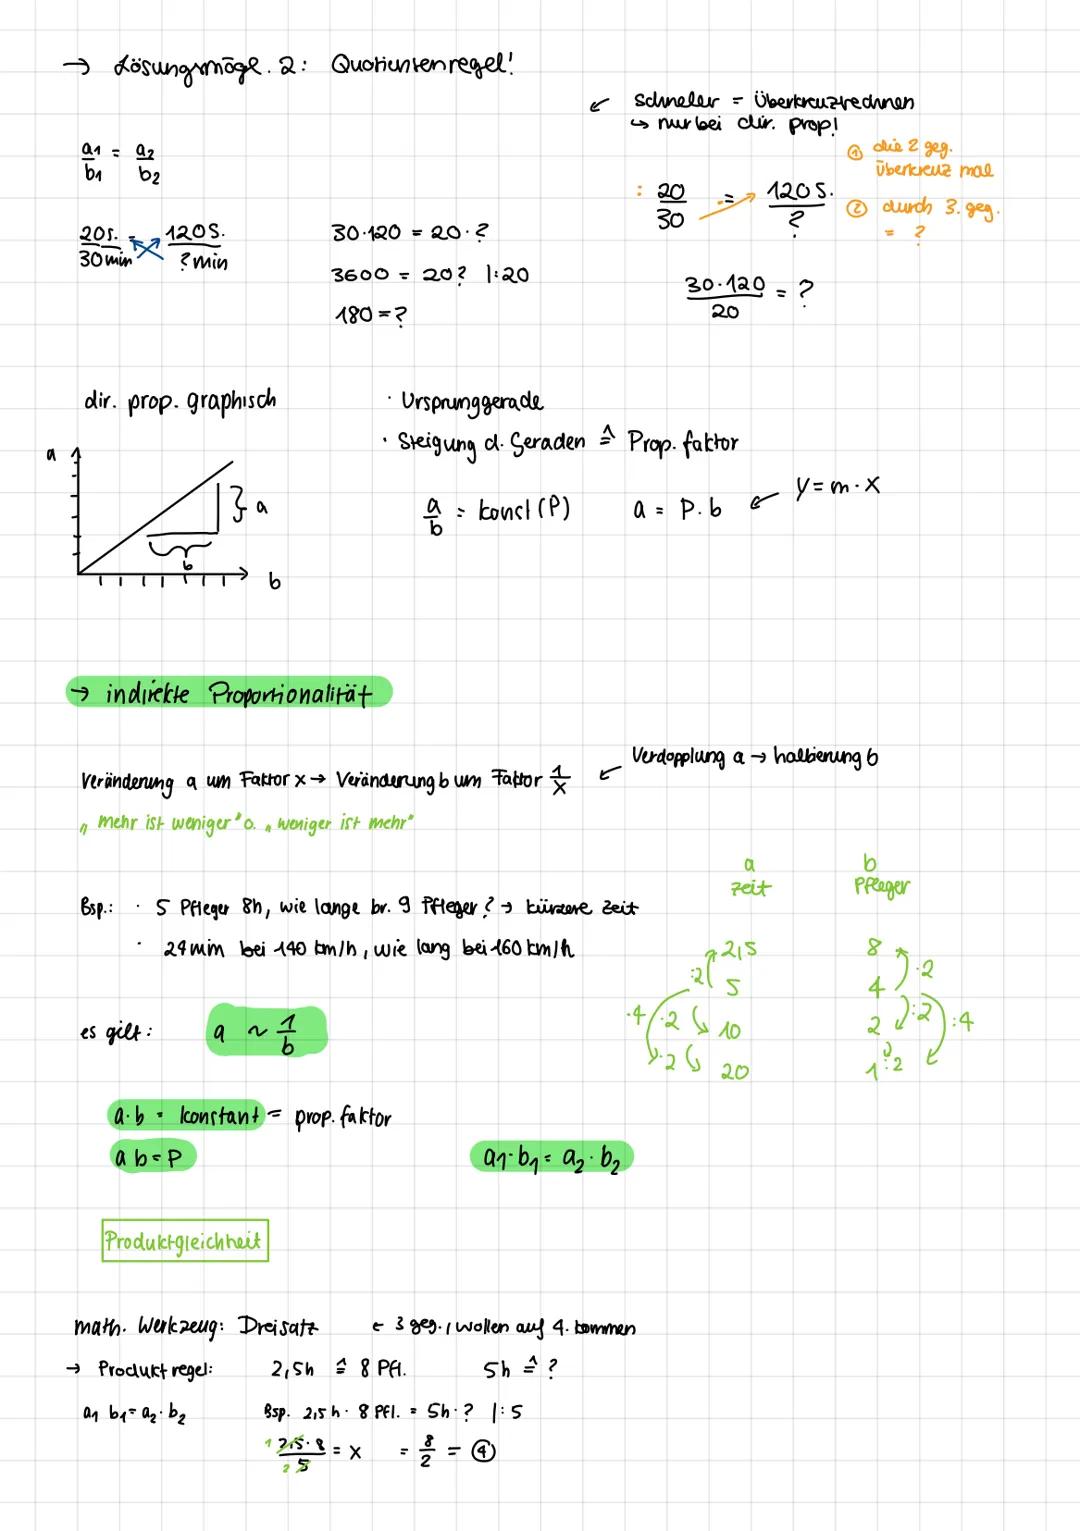 → Lösungsmögl. 2: Quotientenregel!
↙ schneller = Überkreuzrechnen
↳ nur bei dir. prop!
a1/b1 = a2/b2
① die 2 geg. überkreuz mal
② durch 3. geg. = ?
: 20/30 = 120 S./?
20 s./30 min = 120 S./? min
30·120 = 20·?
3600 = 20? |:20
180 = ?
30·120/20 = ?
dir. prop. graphisch
· Ursprunggerade
· Steigung d. Geraden ≙ Prop. faktor
a
} a
b
b
a/b = konst (P)
a = P·b ↙ y = m·x
→ indirekte Proportionalität
Veränderung a um Faktor x → Veränderung b um Faktor 1/x
↙ Verdopplung a → halbierung b
„mehr ist weniger" o. „weniger ist mehr"
Bsp.: · 5 Pfleger 8h, wie lange br. 9 Pfleger? → kürzere Zeit
· 24min bei 140 km/h, wie lang bei 160 km/h
a b
Zeit Pfleger
2,5 8
:2 ·2
5 4
·4 ·2 :2 :4
10 2
·2 :2
20 1
es gilt: a ~ 1/b
a·b = konstant = prop. faktor
a b = P
a1·b1 = a2·b2
Produktgleichheit
math. Werkzeug: Dreisatz ← 3 geg., wollen auf 4. kommen
→ Produktregel: 2,5h ≙ 8 Pfl. 5h ≙ ?
a1 b1 = a2·b2
Bsp. 2,5 h · 8 Pfl. = 5h·? |:5
1 2,5·8/2 5 = x = 8/2 = ④